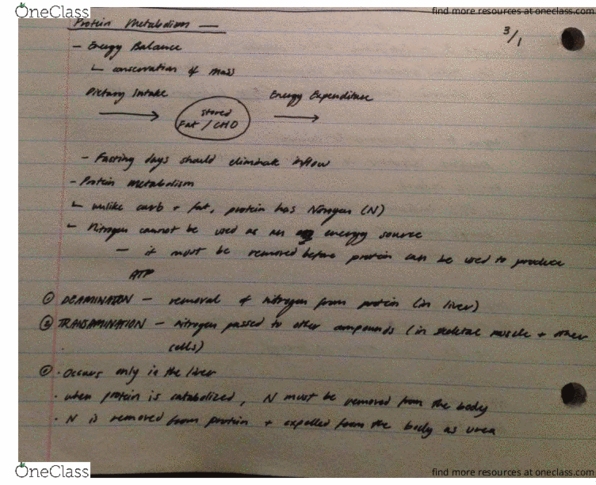 OneClass
find more resources at oneclass.com
Protein Metabolism —
3/1
- Energy Balance
└ conservation of mass
Dietary Intake
Energy Expenditure
stored
Fat / CHO
- Fasting days should eliminate inflow
- Protein metabolism
└ unlike carb + fat, protein has Nitrogen (N)
└ Nitrogen cannot be used as an energy source
- it must be removed before protein can be used to produce
ATP
① DEAMINATION - removal of nitrogen from protein (in liver)
② TRANSAMINATION - nitrogen passed to other compounds (in skeletal muscle + other
cells)
① · Occurs only in the liver
· when protein is catabolized, N must be removed from the body
· N is removed from protein + expelled from the body as urea
OneClass
find more resources at oneclass.com